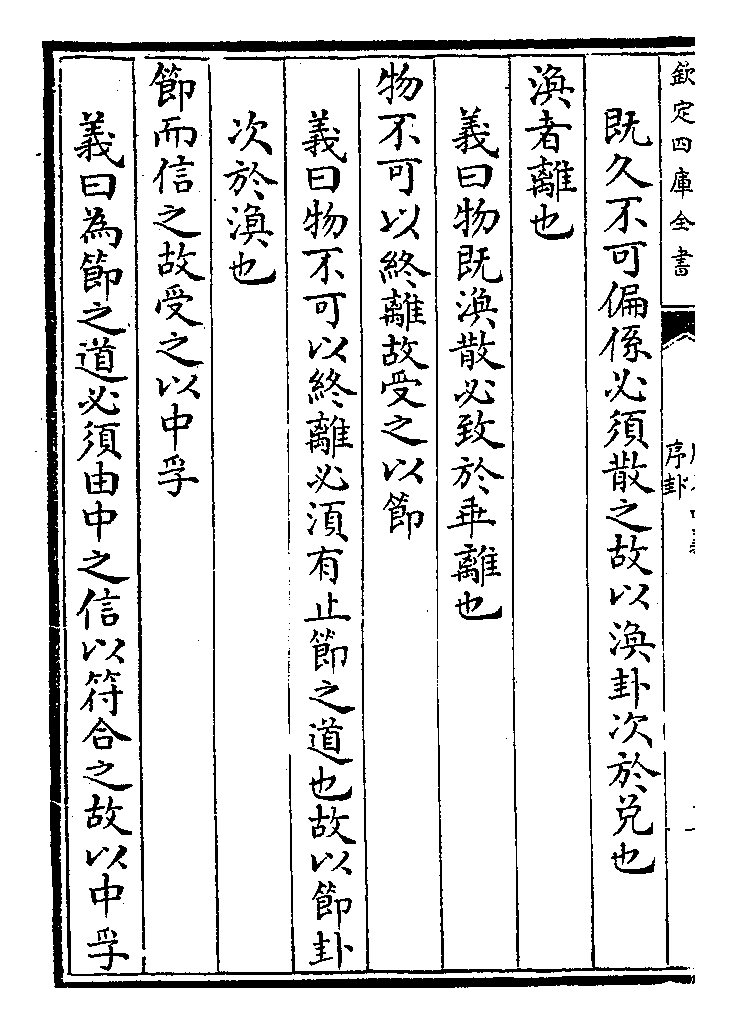 欽定四庫全書
序卦
既久不可偏係必須散之故以渙卦次於兌也
渙者離也
義曰物既渙散必致於乖離也
物不可以終離故受之以節
義曰物不可以終離必須有止節之道也故以節卦
次於渙也
節而信之故受之以中孚
義曰為節之道必須由中之信以符合之故以中孚